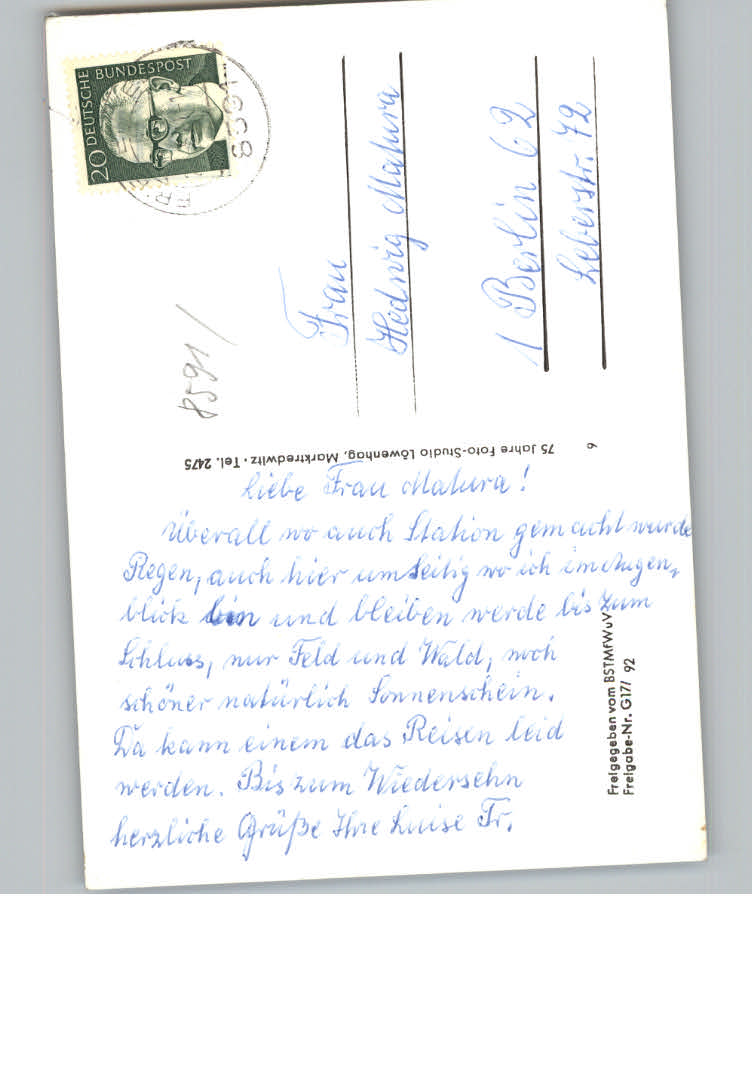 20 DEUTSCHE BUNDESPOST
8591
8591/
Frau
Hedwig Mahura
1 Berlin 62
Leberstr. 72
75 Jahre Foto-Studio Löwenhag, Marktredwitz · Tel. 2475
6
Liebe Frau Mahura!
Überall wo auch Station gemacht wurde
Regen, auch hier umseitig wo ich im Augen,
blick bin und bleiben werde bis zum
Schluss, nur Feld und Wald, noch
schöner natürlich Sonnenschein.
Da kann einem das Reisen leid
werden. Bis zum Wiedersehn
herzliche Grüße Ihre Luise Fr.
Freigegeben vom BSTMfWuV
Freigabe-Nr. G17/ 92